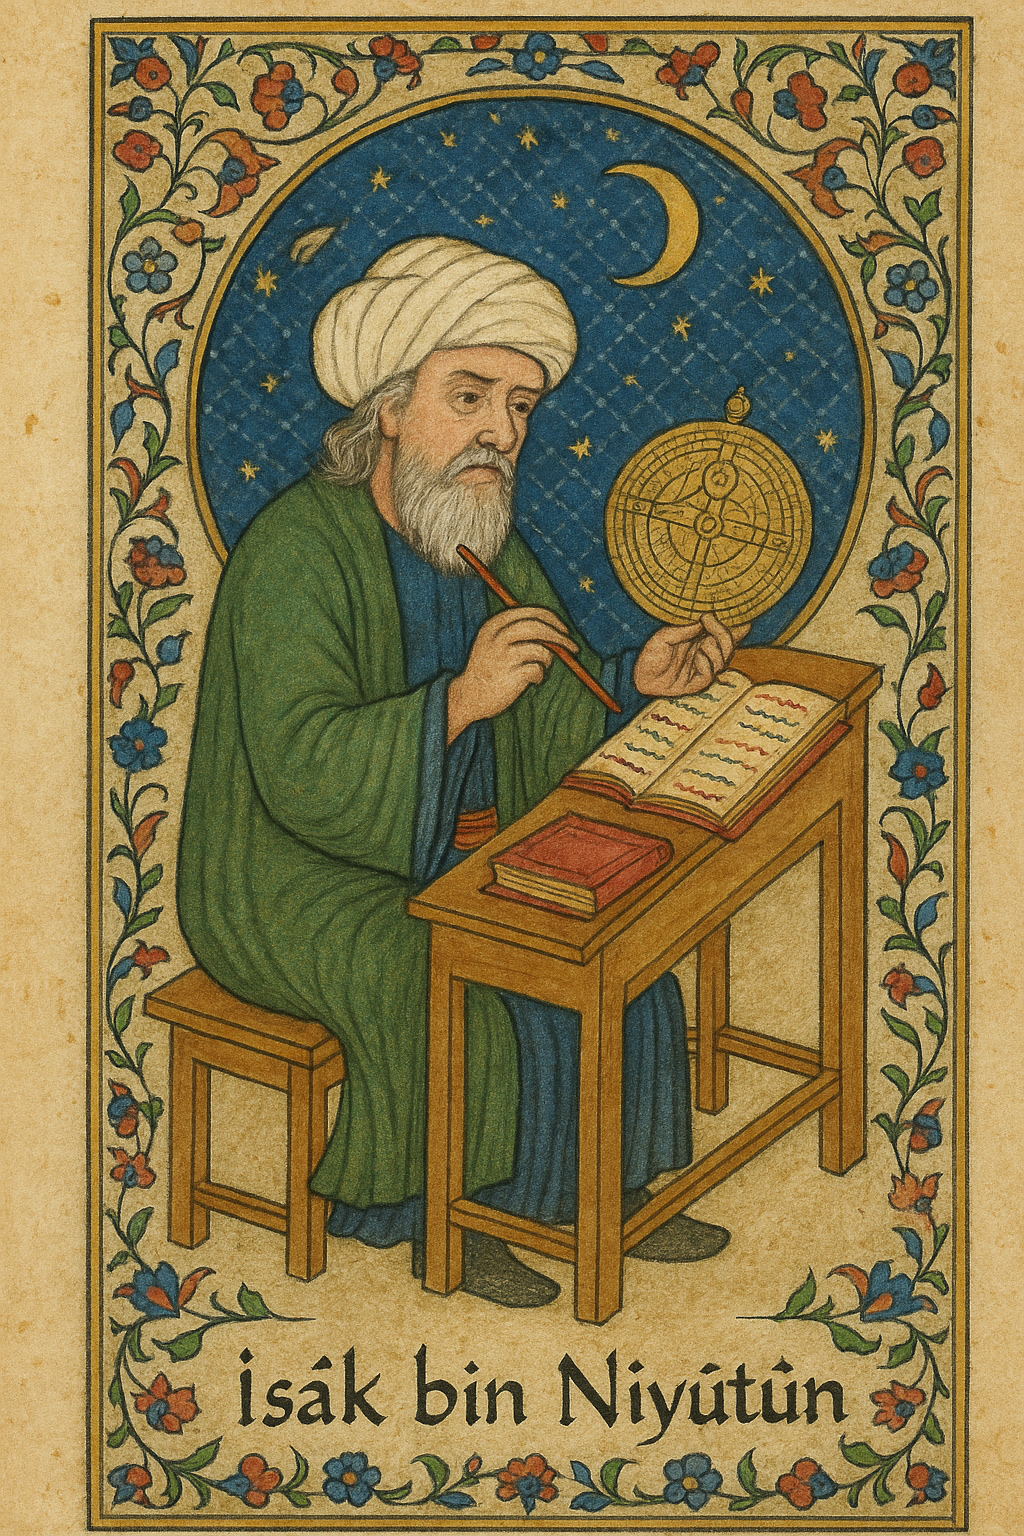 İsâk bin Niyútûn